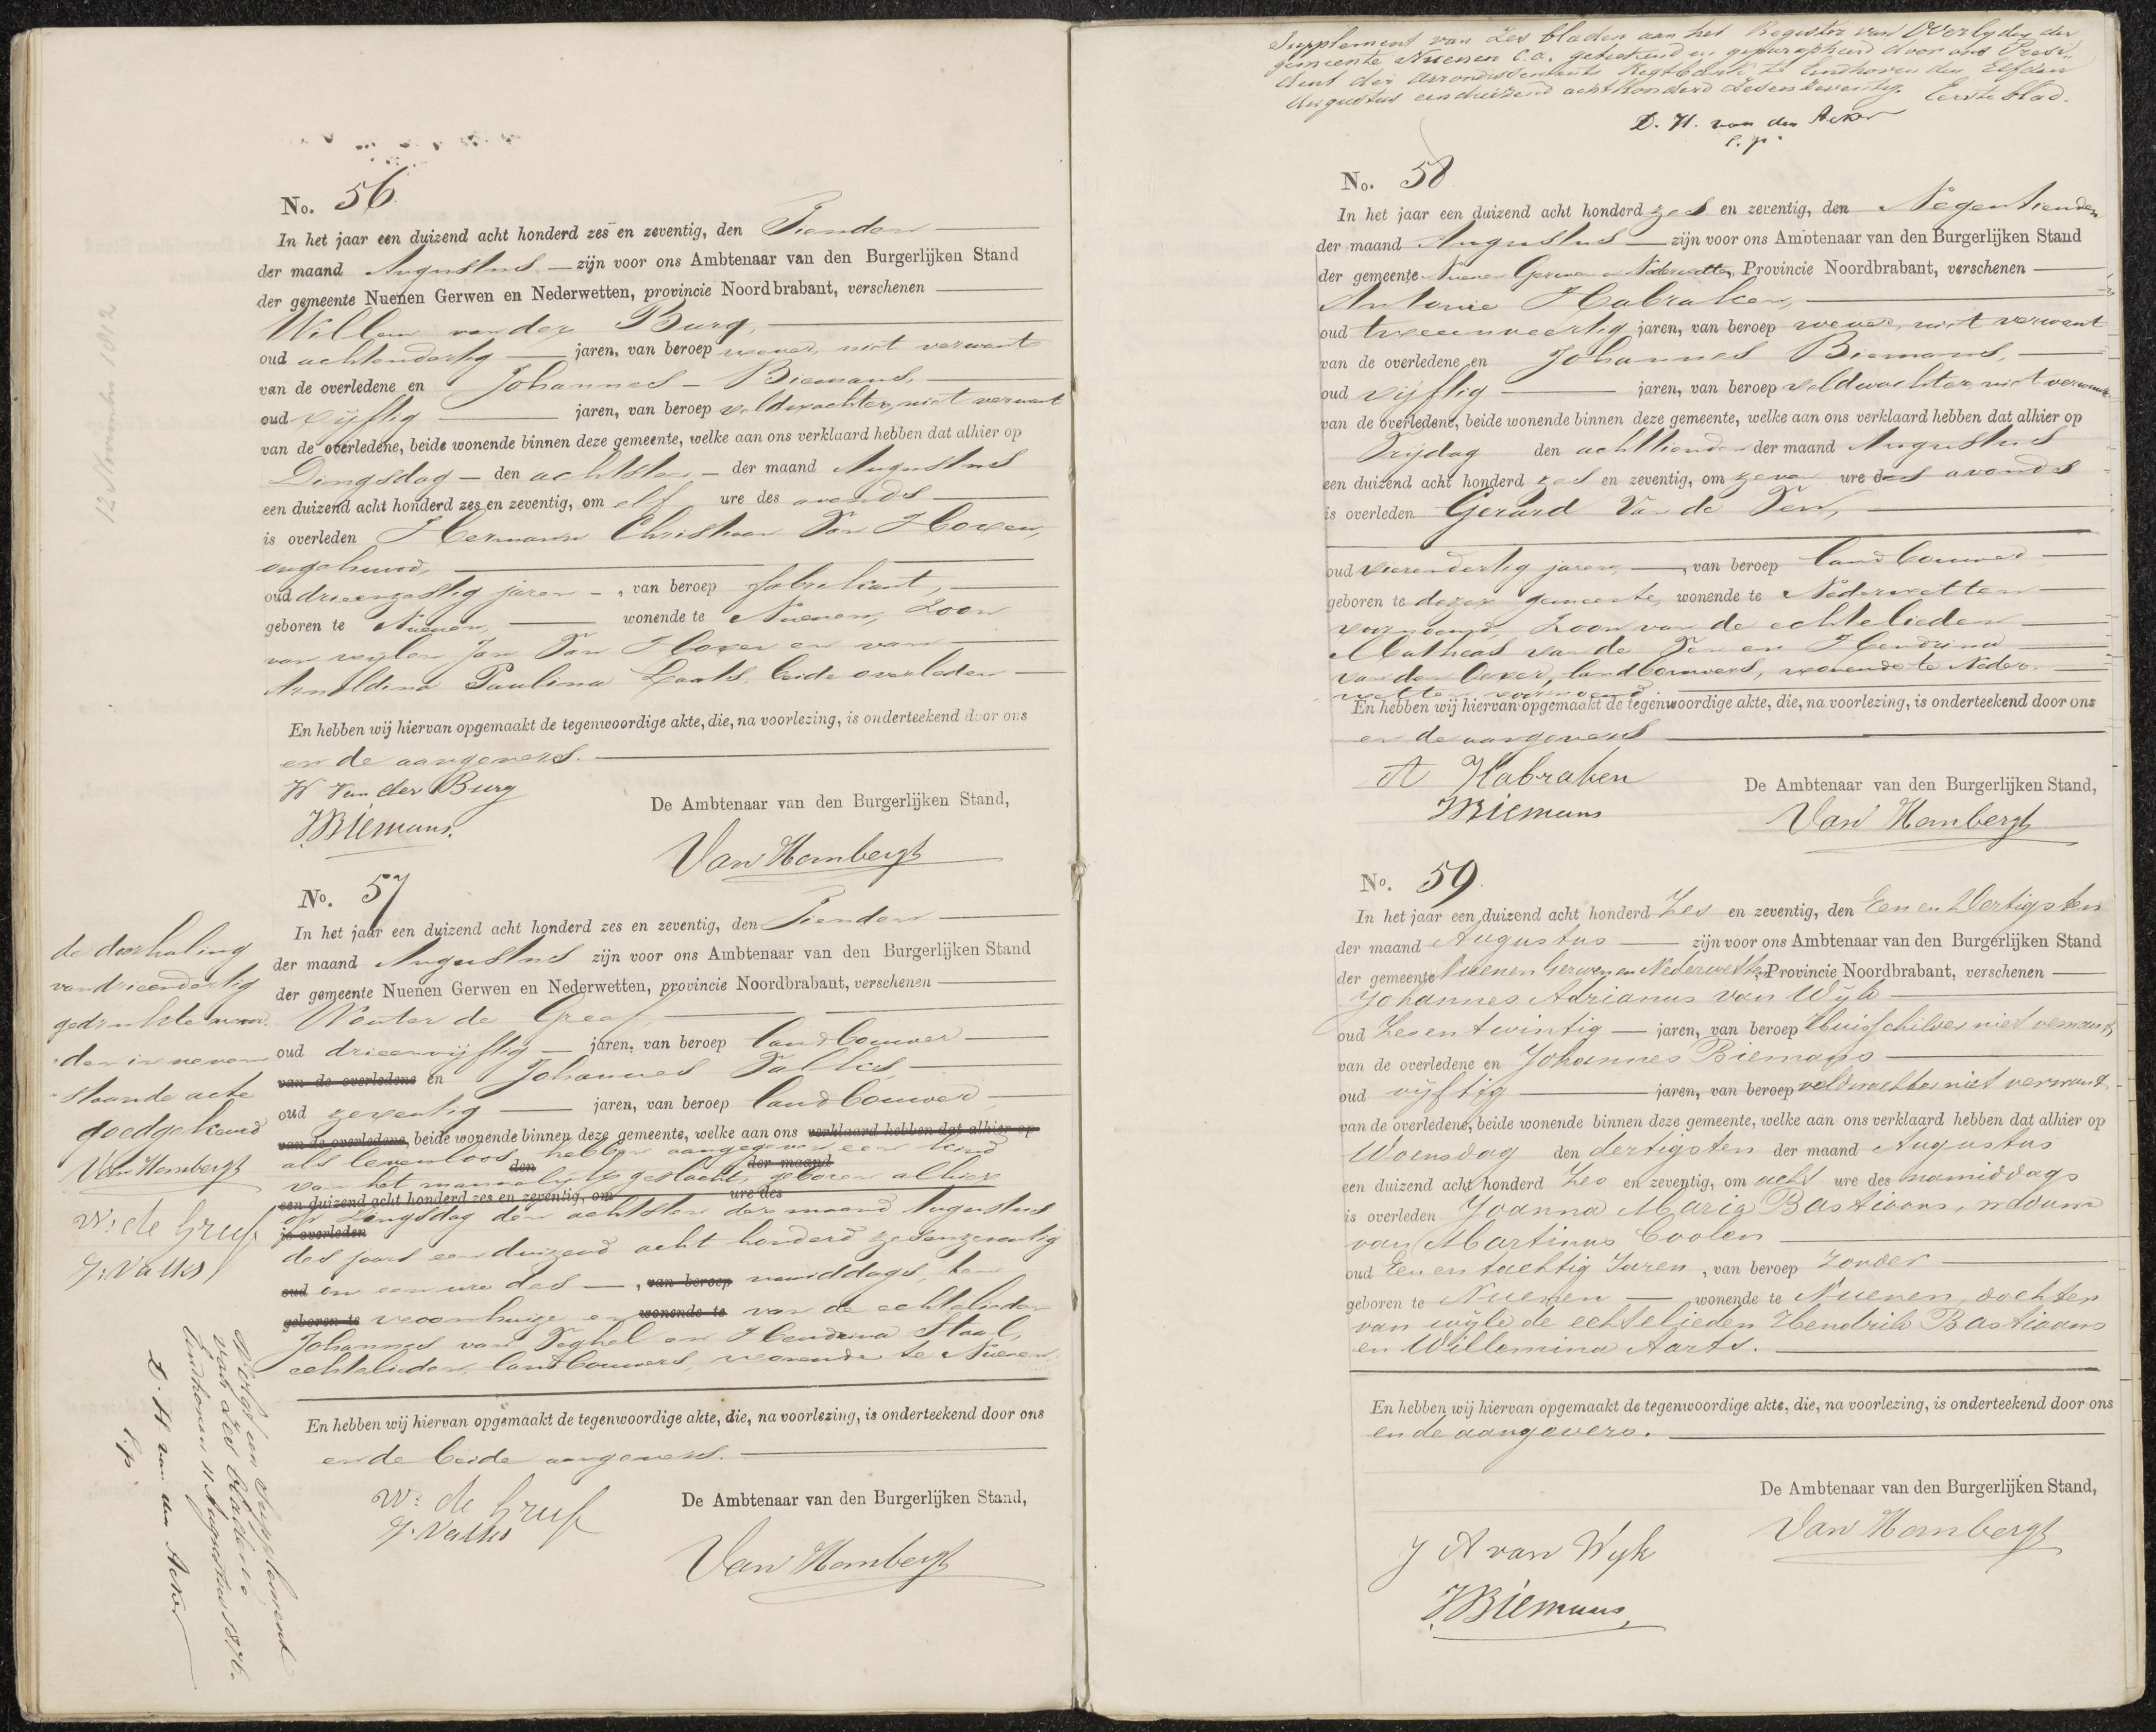 12 November 1812
No. 56.
In het jaar een duizend acht honderd zes en zeventig, den Tienden
der maand Augustus zijn voor ons Ambtenaar van den Burgerlijken Stand
der gemeente Nuenen Gerwen en Nederwetten, provincie Noordbrabant, verschenen
Willem van der Burg,
oud achtendertig jaren, van beroep wever, niet verwant
van de overledene en Johannes Biemans,
oud vijftig jaren, van beroep veldwachter, niet verwant
van de overledene, beide wonende binnen deze gemeente, welke aan ons verklaard hebben dat alhier op
Dingsdag den achtsten der maand Augustus
een duizend acht honderd zes en zeventig, om elf ure des avonds
is overleden Hermanus Christiaan Van Hoven,
ongehuwd,
oud drieenzestig jaren, van beroep fabrikant,
geboren te Nuenen, wonende te Nuenen, Zoon
van wijlen Jan Van Hoven en van
Arnoldina Paulina Raats, beide overleden
En hebben wij hiervan opgemaakt de tegenwoordige akte, die, na voorlezing, is onderteekend door ons
en de aangevers.
W Van der Burg
J Biemans.
De Ambtenaar van den Burgerlijken Stand,
Van Hombergh
No. 57
In het jaar een duizend acht honderd zes en zeventig, den Tienden
der maand Augustus zijn voor ons Ambtenaar van den Burgerlijken Stand
der gemeente Nuenen Gerwen en Nederwetten, provincie Noordbrabant, verschenen
Wouter de Greef
oud drieenvijftig jaren, van beroep landbouwer
van de overledene en Johannes Valks,
oud zeventig jaren, van beroep landbouwer,
van de overledene, beide wonende binnen deze gemeente, welke aan ons verklaard hebben dat alhier op
als levenloos hebben aangegeven een kind
den der maand
van het mannelijk geslacht, geboren alhier
een duizend acht honderd zes en zeventig, om ure des
op Dingsdag den achtsten der maand Augustus
is overleden
des jaars een duizend acht honderd zesenzeventig
oud om een ure des , van beroep namiddags, ten
geboren te woonhuize en wonende te van de echtelieden
Johannes van Veghel en Hendrina Staal,
echtelieden, landbouwers, wonende te Nuenen.
En hebben wij hiervan opgemaakt de tegenwoordige akte, die, na voorlezing, is onderteekend door ons
en de beide aangevers.
W: de Greef
J. Valks
De Ambtenaar van den Burgerlijken Stand,
Van Hombergh
de doorhaling
van drieendertig
gedrukte woor
den in neven
staande acte
goedgekeurd
Van Hombergh
W: de Greef
J. Valks
Volgt een Supplement
van zes bladen.
Eindhoven 11 Augustus 1876.
D. H. van den Acker
l.p.
Supplement van Zes bladen aan het Register van Overlyden der
gemeente Nuenen C.a. getekend en geparapheerd door ons Presi-
dent der Arrondissements Regtbank te Eindhoven den Elfden
Augustus eenduizend achthonderd zesenzeventig. Eerste blad.
D. H. van den Acker
l.p.
No. 58
In het jaar een duizend acht honderd zes en zeventig, den Negentienden
der maand Augustus zijn voor ons Ambtenaar van den Burgerlijken Stand
der gemeente Nuenen Gerwen en Nederwetten, Provincie Noordbrabant, verschenen
Antonie Habraken,
oud tweeenveertig jaren, van beroep wever, niet verwant
van de overledene en Johannes Biemans,
oud vijftig jaren, van beroep veldwachter, niet verwant
van de overledene, beide wonende binnen deze gemeente, welke aan ons verklaard hebben dat alhier op
Vrijdag den achttienden der maand Augustus
een duizend acht honderd zes en zeventig, om zeven ure des avonds
is overleden Gerard Van de Ven,
oud vierendertig jaren, van beroep landbouwer
geboren te dezer gemeente, wonende te Nederwetten
voornoemd, Zoon van de echtelieden
Matheas van de Ven en Hendrina
van den Boxer, landbouwers, wonende te Neder-
wetten voornoemd
En hebben wij hiervan opgemaakt de tegenwoordige akte, die, na voorlezing, is onderteekend door ons
en de aangevers
A Habraken
J Biemans
De Ambtenaar van den Burgerlijken Stand,
Van Hombergh
No. 59.
In het jaar een duizend acht honderd Zes en zeventig, den Een en Dertigsten
der maand Augustus zijn voor ons Ambtenaar van den Burgerlijken Stand
der gemeente Nuenen Gerwen en Nederwetten, Provincie Noordbrabant, verschenen
Johannes Adrianus van Wijk
oud Zesentwintig jaren, van beroep Huisschilder niet verwant,
van de overledene en Johannes Biemans
oud vijftig jaren, van beroep veldwachter niet verwant
van de overledene, beide wonende binnen deze gemeente, welke aan ons verklaard hebben dat alhier op
Woensdag den dertigsten der maand Augustus
een duizend acht honderd Zes en zeventig, om acht ure des namiddags
is overleden Joanna Maria Bastiaans, weduwe
van Martinus Coolen
oud Een en tachtig Jaren, van beroep zonder
geboren te Nuenen wonende te Nuenen, dochter
van wijle de echtelieden Hendrik Bastiaans
en Willemina Aarts.
En hebben wij hiervan opgemaakt de tegenwoordige akte, die, na voorlezing, is onderteekend door ons
en de aangevers.
De Ambtenaar van den Burgerlijken Stand,
Van Hombergh
J A van Wyk
J Biemans,